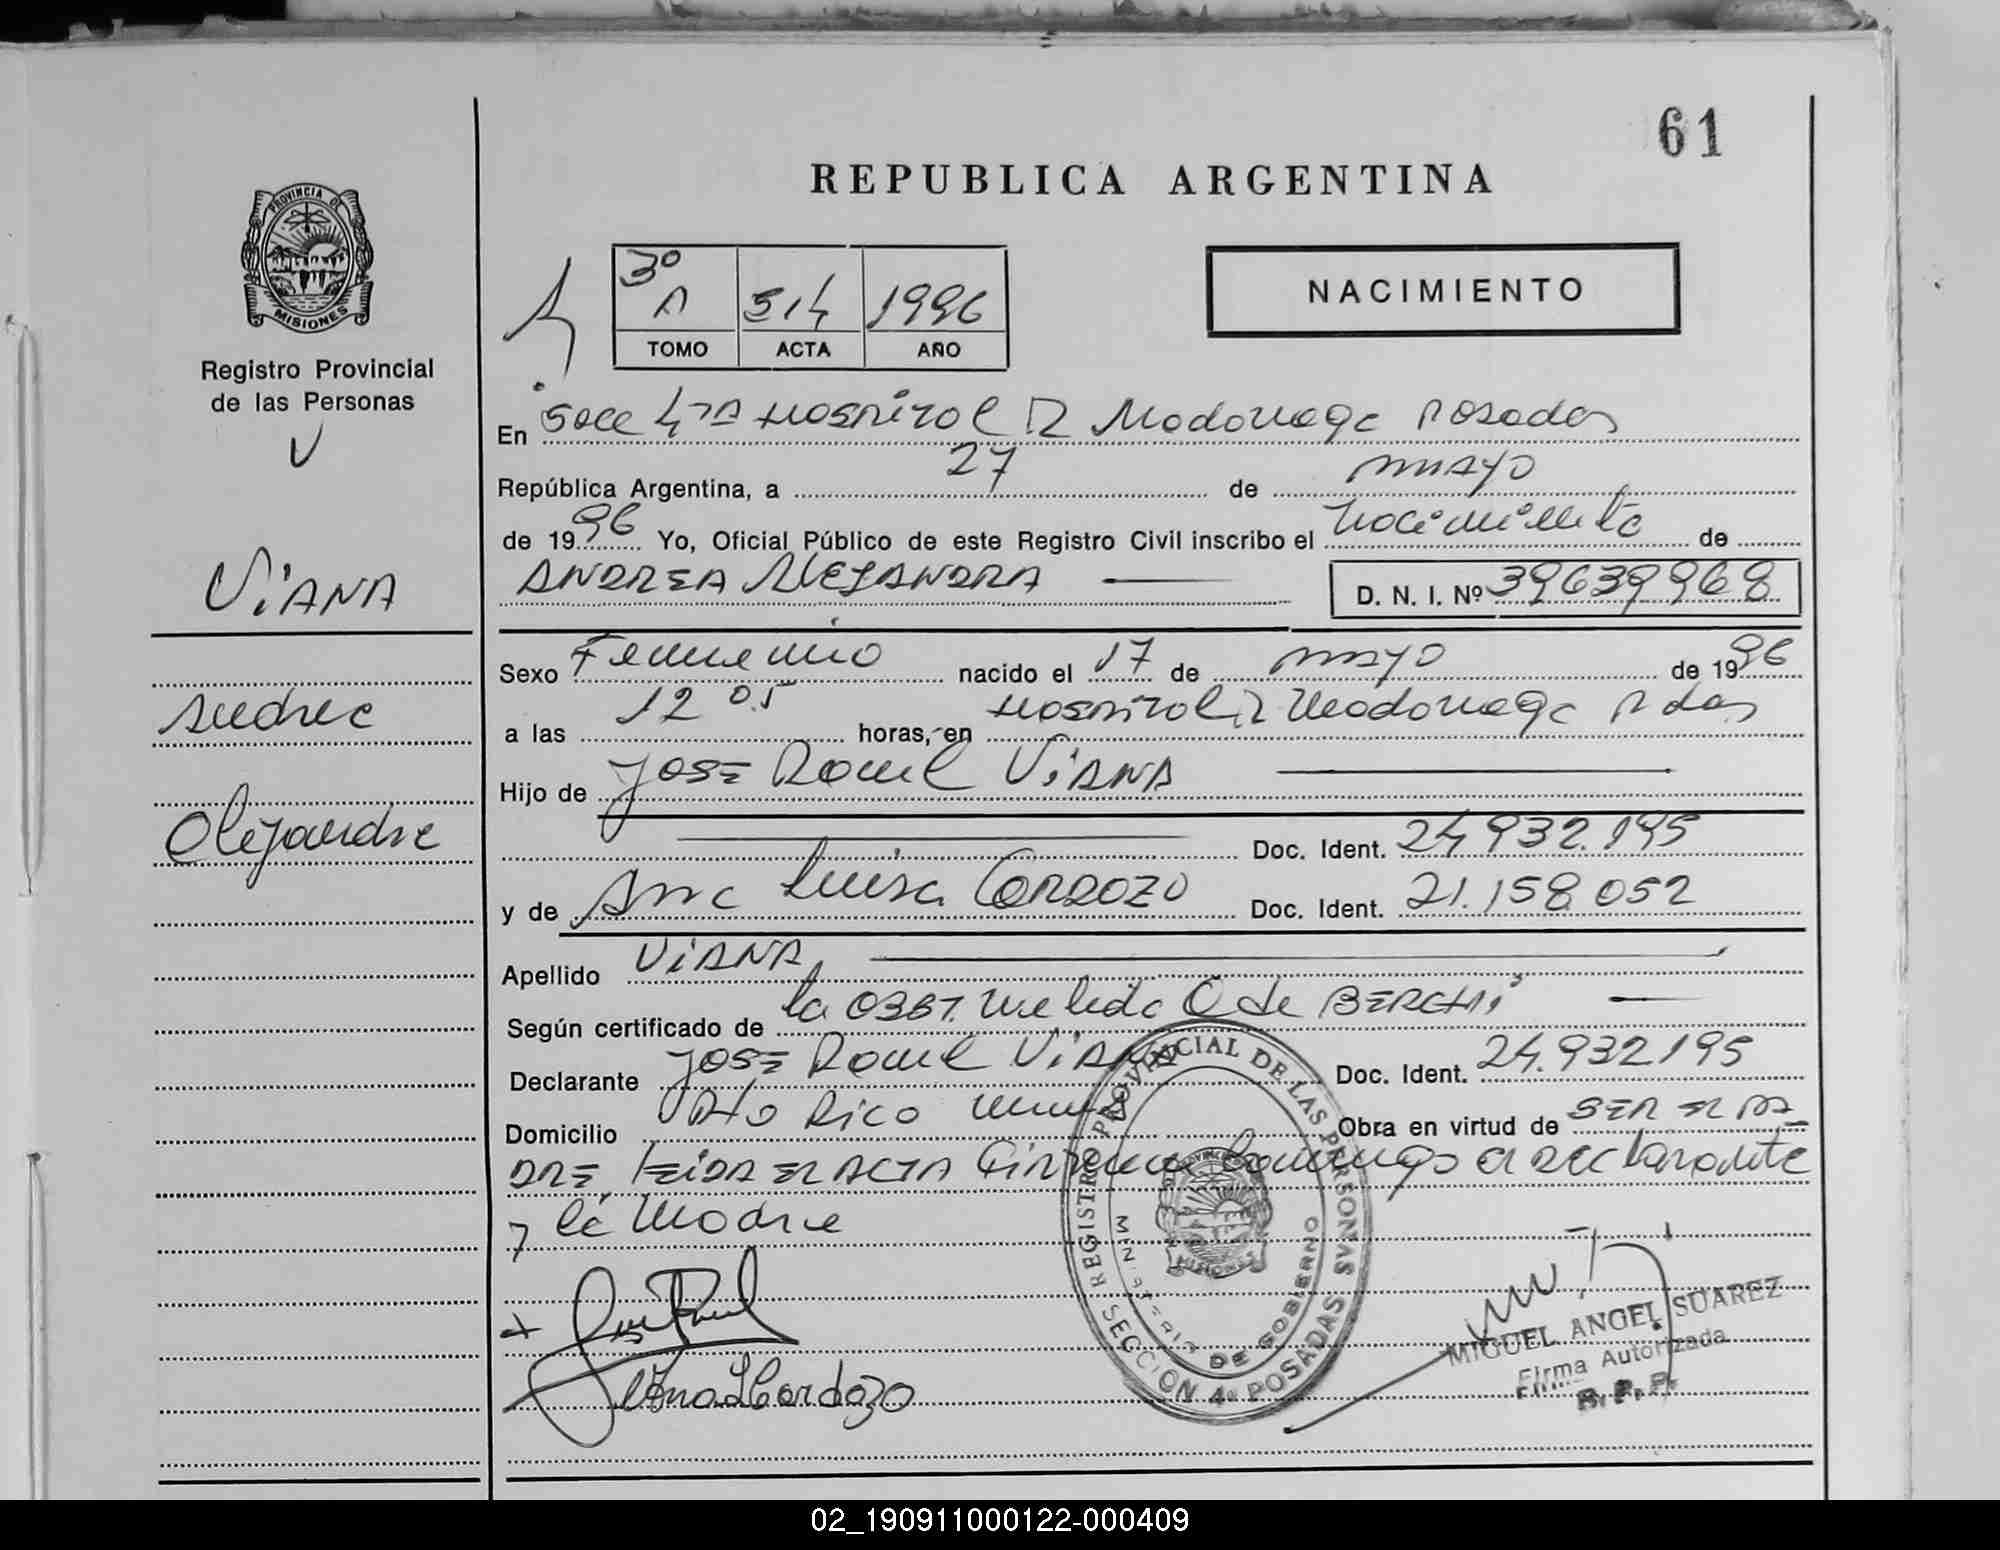 61
REPUBLICA ARGENTINA
PROVINCIA DE
MISIONES
Registro Provincial
de las Personas
V
3º
A 514 1996
TOMO ACTA AÑO
NACIMIENTO
En Secc 4ta Hospitol R Madariaga Posadas
República Argentina, a 27 de mayo
de 1996 Yo, Oficial Público de este Registro Civil inscribo el nacimiento de
VIANA
ANDREA ALEJANDRA
D. N. I. Nº 39639968
Sexo Femenino nacido el 17 de mayo de 1996
Andrea
a las 12 05 horas, en Hospitol R Madariaga Pdas
Hijo de JOSE Raul VIANA
Alejandra
Doc. Ident. 24.932.195
y de Ana Luisa CARDOZO Doc. Ident. 21.158.052
Apellido VIANA
Según certificado de la OBST. de BERCHI
Declarante JOSE Raul VIANA Doc. Ident. 24.932195
Domicilio Pto Rico Obra en virtud de SER EL PA
DRE, LEIDA EL ACTA Firman conmigo el DECLARANTE
y la Madre
Ana L Cardozo
REGISTRO PROVINCIAL DE LAS PERSONAS
MINISTERIO DE GOBIERNO
PROVINCIA
MISIONES
SECCION 4ª POSADAS
MIGUEL ANGEL SUAREZ
Firma Autorizada
R. P. P.
02_190911000122-000409